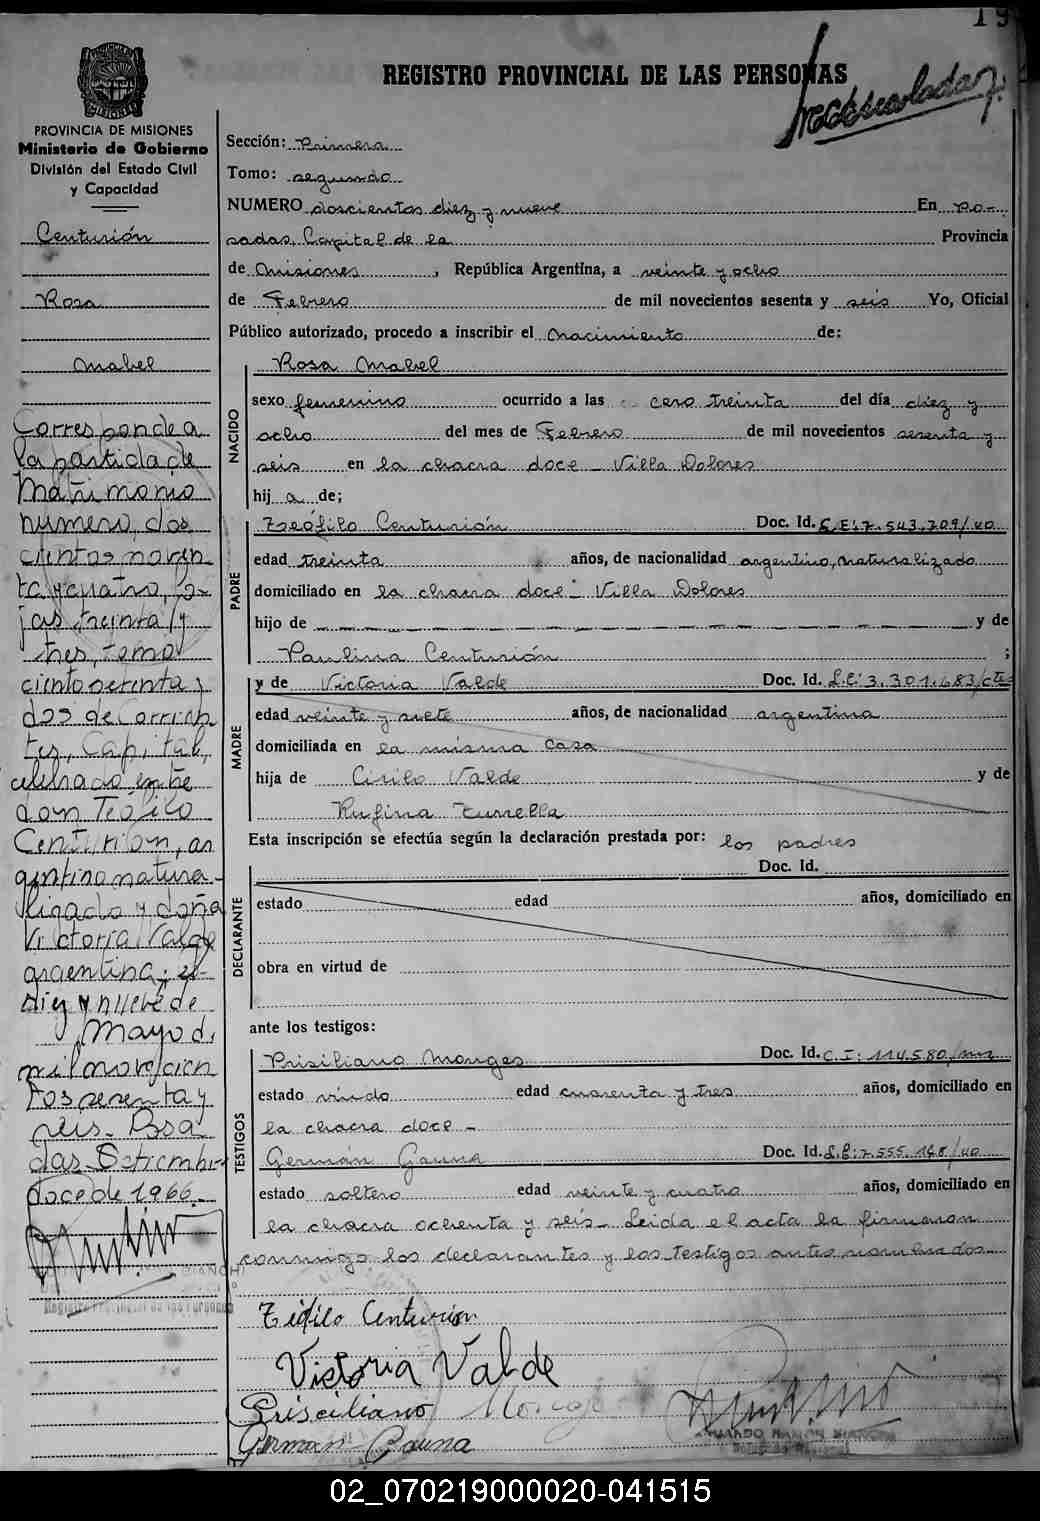 19
REGISTRO PROVINCIAL DE LAS PERSONAS
PROVINCIA DE MISIONES
Ministerio de Gobierno
División del Estado Civil
y Capacidad
Centurión
Rosa
Mabel
Corresponde a
la partida de
Matrimonio
número, dos
cientos noven
ta y cuatro, fo-
jas treinta y
tres, tomo
ciento setenta y
dos de Corrien
tes, Capital,
celebrado entre
don Teófilo
Centurión, ar
gentino natura-
lizado y doña
Victoria Valde
argentina, el
diez y nueve de
Mayo de
mil novecien
tos sesenta y
seis. Posa
das Setiembre
doce de 1966.
Registro Provincial de las Personas
Sección: Primera
Tomo: segundo
NUMERO doscientos diez y nueve En Po-
sadas, Capital de la Provincia
de Misiones, República Argentina, a veinte y ocho
de Febrero de mil novecientos sesenta y seis Yo, Oficial
Público autorizado, procedo a inscribir el Nacimiento de:
Rosa Mabel
NACIDO
sexo femenino ocurrido a las cero treinta del día diez y
ocho del mes de Febrero de mil novecientos sesenta y
seis en la chacra doce - Villa Dolores
hij a de;
PADRE
Teófilo Centurión Doc. Id. L.E: 7.543.709/40
edad treinta años, de nacionalidad argentino, naturalizado
domiciliado en la chacra doce - Villa Dolores
hijo de y de
Paulina Centurión ;
MADRE
y de Victoria Valde Doc. Id. L.C: 3.301.683/ctes
edad veinte y siete años, de nacionalidad argentina
domiciliada en la misma casa
hija de Cirilo Valde y de
Rufina
Esta inscripción se efectúa según la declaración prestada por: los padres
Doc. Id.
DECLARANTE
estado edad años, domiciliado en
obra en virtud de
ante los testigos:
TESTIGOS
Prisiliano Monges Doc. Id. C.I: 114.580/mnes
estado viudo edad cuarenta y tres años, domiciliado en
la chacra doce -
German Gauna Doc. Id. L.E: 7.555.148/40
estado soltero edad veinte y cuatro años, domiciliado en
la chacra ochenta y seis - Leida el acta la firmaron
conmigo los declarantes y los testigos antes nombrados.
Teófilo Centurion
Victoria Valde
Prisciliano Monges
German Gauna
02_070219000020-041515